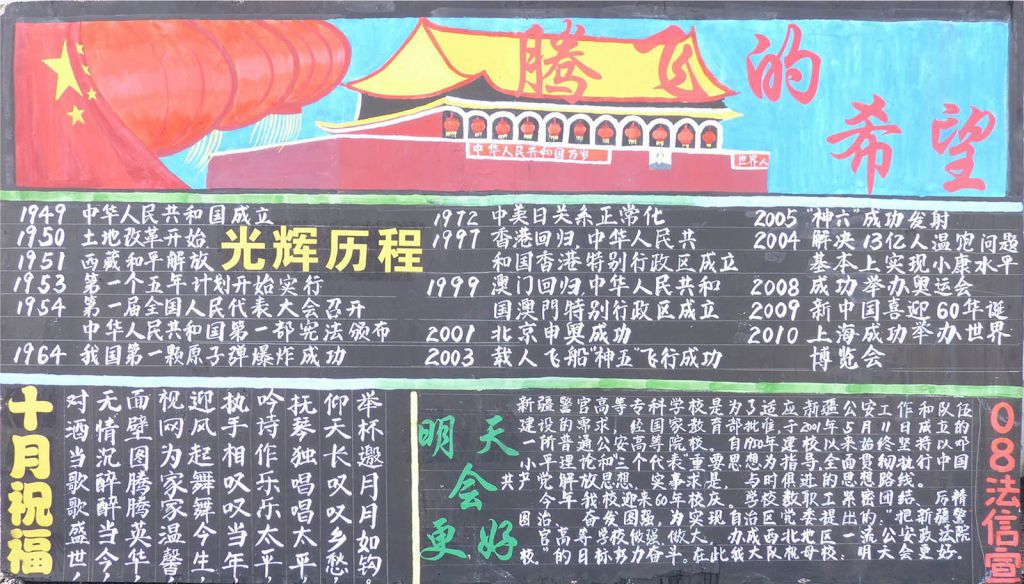 腾飞的
希望
中华人民共和国万岁
世界人
光辉历程
1949 中华人民共和国成立
1950 土地改革开始
1951 西藏和平解放
1953 第一个五年计划开始实行
1954 第一届全国人民代表大会召开
中华人民共和国第一部宪法颁布
1964 我国第一颗原子弹爆炸成功
1972 中美日关系正常化
1997 香港回归,中华人民共
和国香港特别行政区成立
1999 澳门回归中华人民共和
国澳門特别行政区成立
2001 北京申奥成功
2003 载人飞船"神五"飞行成功
2005 "神六"成功发射
2004 解决13亿人温饱问题
基本上实现小康水平
2008 成功举办奥运会
2009 新中国喜迎60年诞
2010 上海成功举办世界
博览会
十月祝福
举杯邀月月如钩。
仰天长叹叹乡愁,
抚琴独唱唱太平。
吟诗作乐乐太平,
执手相叹叹当年,
迎风起舞舞今生,
视网为家家温馨,
面壁图腾腾英华,
无情沉醉醉当今,
对酒当歌歌盛世,
明天
会
更好
新疆警官高等专科学校是为了适应新疆公安工作和队伍
建设的需求,经国家教育部批准,于2001年5月11日成立的
一所普通公安高等院校。自1950年建校以来始终坚持以邓
小平理论和三个代表重要思想为指导,全面贯彻执行中国
共产党解放思想、实事求是、与时俱进的思想路线。
今年我校迎来60年校庆。学校教职工紧密团结、厉精
图治、奋发图强,为实现自治区党委提出的"把新疆警
官高等学校做强做大,办成西北地区一流公安政法院
校"的目标努力奋斗。在此我大队祝母校:明天会更好。
08法信宣